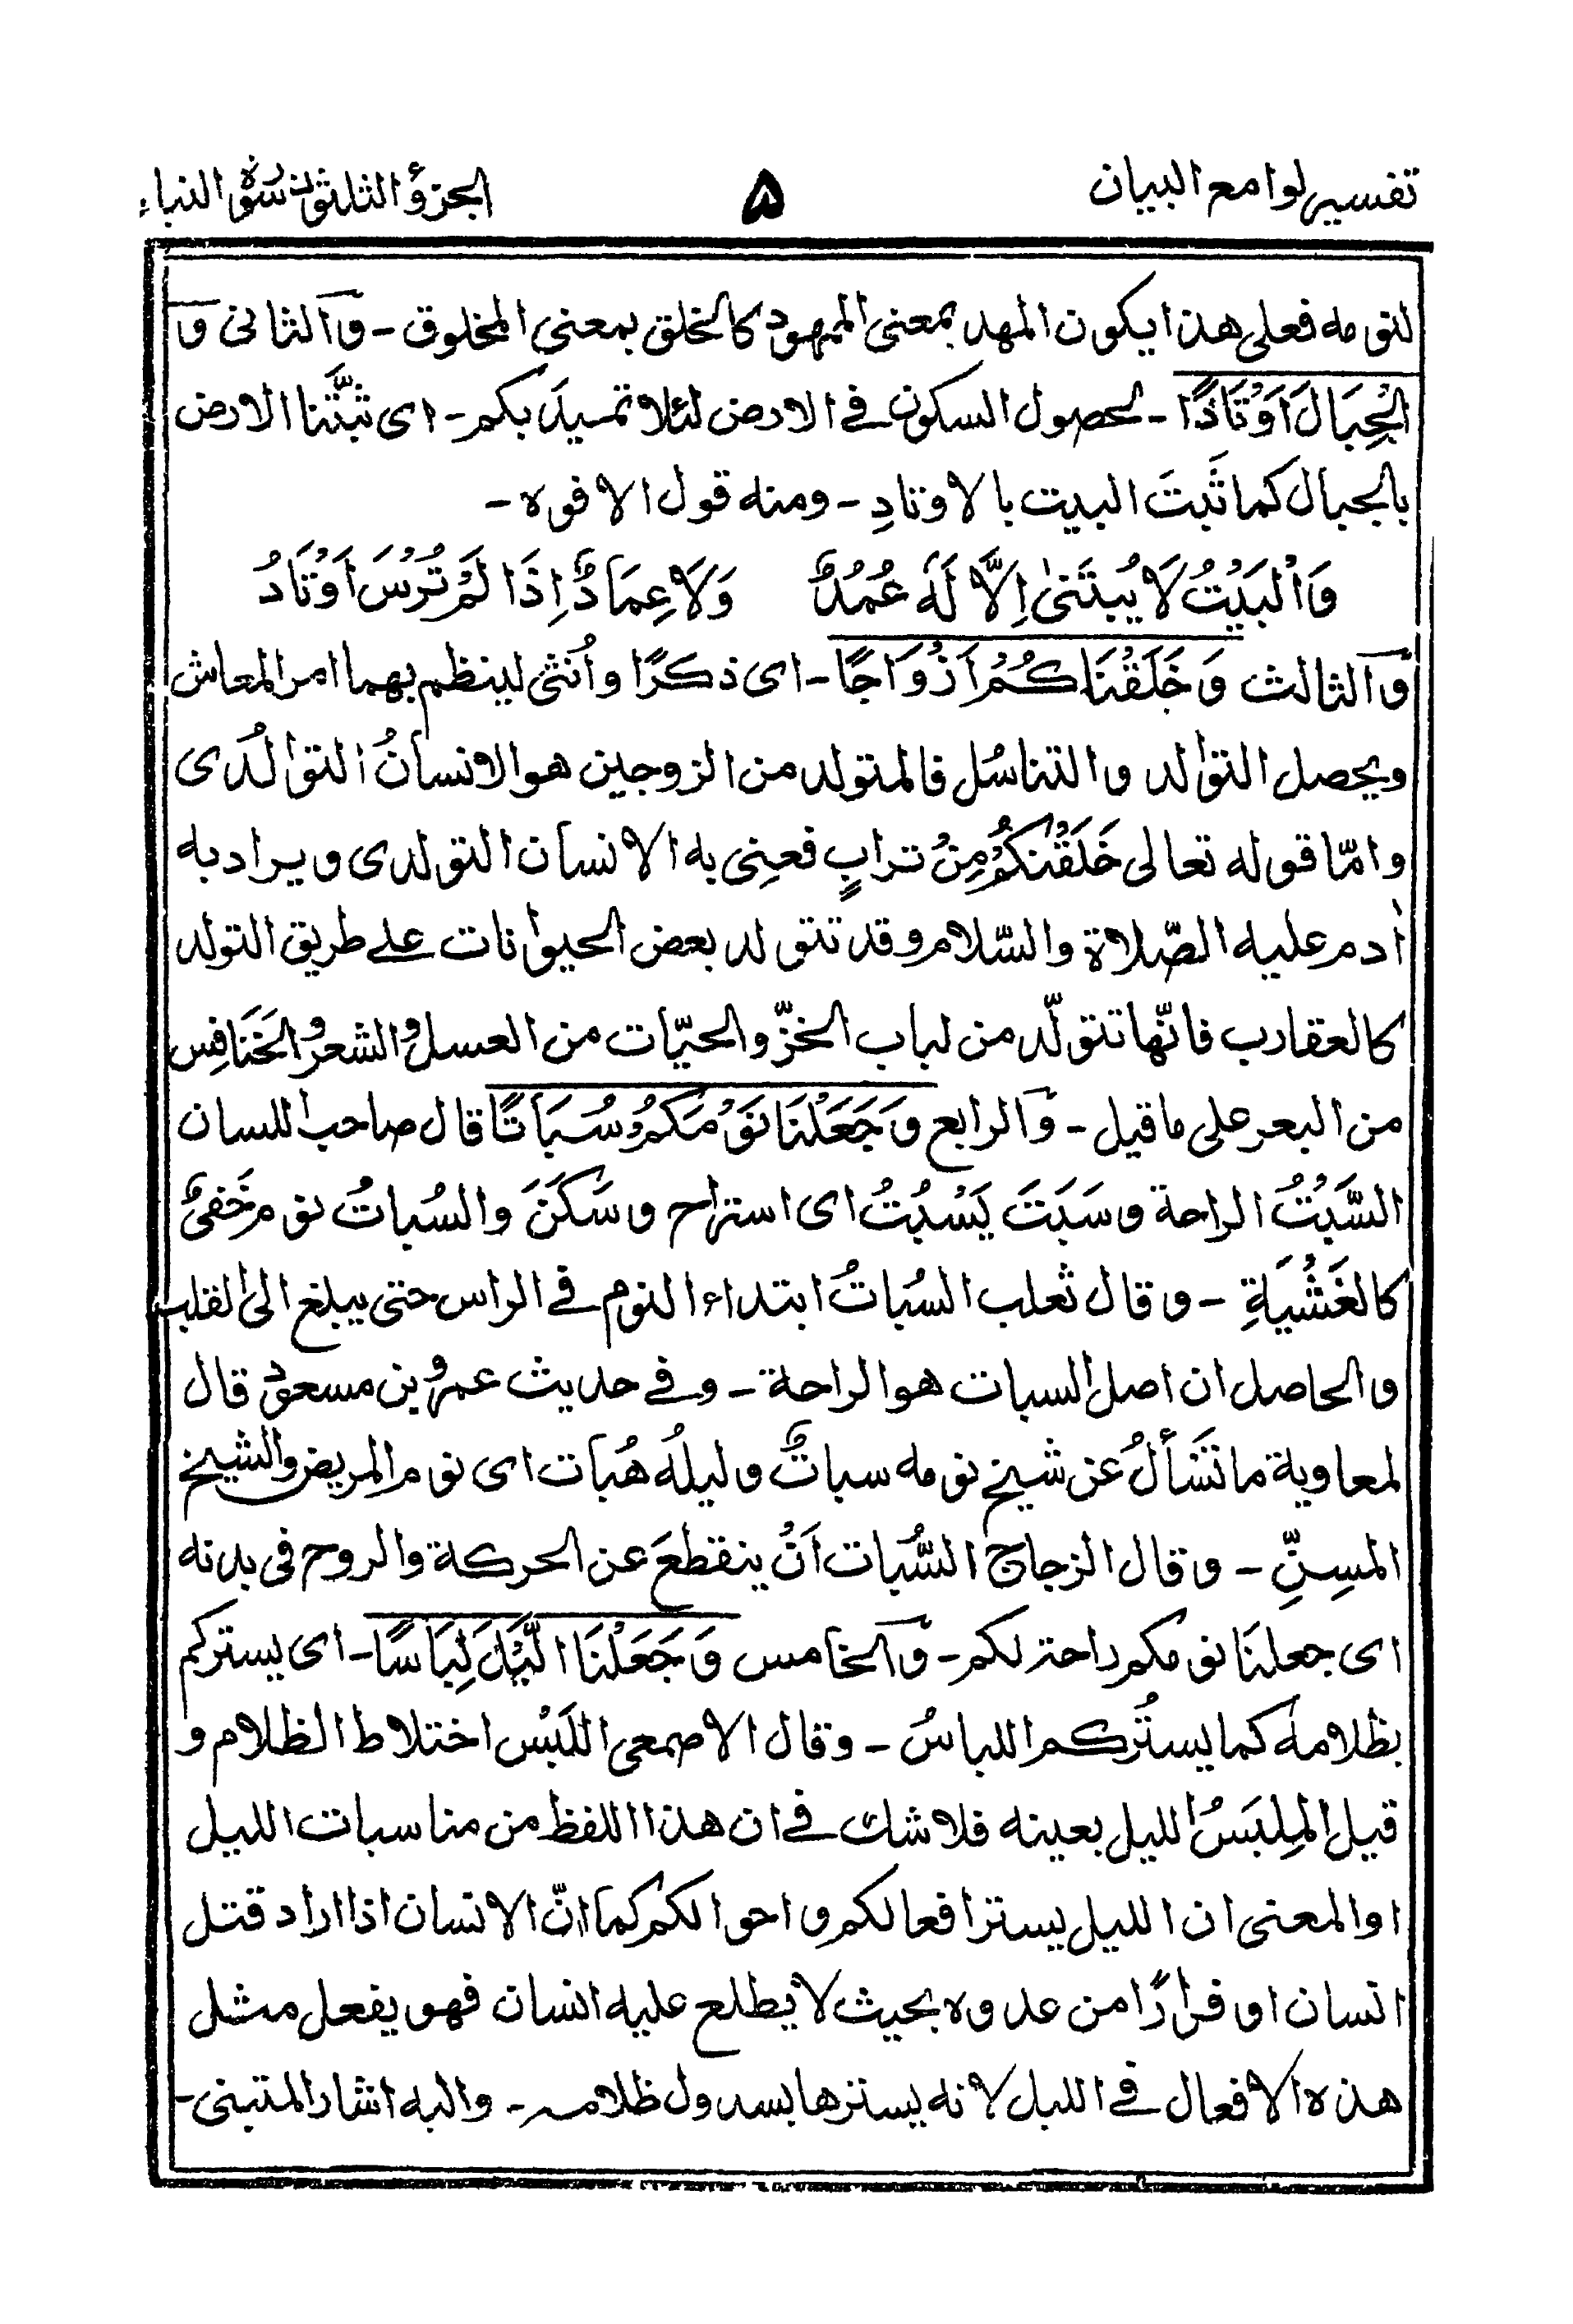 تفسير لوامع البيان
۵
الجزؤ الثلثون سورة النباء
لنومه فعلى هذا يكون المهد بمعنى الممهود كالخلق بمعنى المخلوق - والثانى و
الْجِبَالَ اَوْتَادًا - لحصول السكون فے الارض لئلا تميدَ بكم - اى ثبَّتنا الارض
بالجبال كما ثَبتَ البيت بالاوتادِ - ومنه قول الافوه -
وَالْبَيْتُ لَا يُبتَنىٰ اِلَّا لَهٗ عُمُدٌ وَلَا عِمَادٌ اِذَا لَمْ تُرْسَ اَوْتَادُ
والثالث وَخَلَقْنَاكُمْ اَزْوَاجًا - اى ذكرًا واُنثى لينظم بهما امر المعاش
ويحصل التوالد والتناسُل فالمتولد من الزوجين هو الانسانُ التوالُدى
وامّا قوله تعالى خَلَقْنٰكُمْ مِنْ ترابٍ فعنِى به الانسان التولدى ويراد به
اٰدم عليه الصّلاة والسّلام وقد تتولد بعض الحيوانات علے طريق التولد
كالعقارب فانّها تتولّد من لباب الخزّ والحيّات من العسل والشعر والخَنَافِس
من البعر على ما قيل - والرابع وَجَعَلْنَا نَوْمَكُمْ سُبَاتًا قال صاحب اللسان
السَّبْتُ الراحة وسَبَتَ يَسْبُتُ اى استراح وسَكَنَ والسُباتُ نوم خَفىٌ
كالغَشْيَةِ - وقال ثعلب السُبَاتُ ابتداء النوم فے الراس حتى يبلغ الى القلب
والحاصل ان اصل السبات هو الراحة - وفے حديث عمرو بن مسعود قال
لمعاوية ما تَسأَلُ عن شيخ نومه سباتٌ وليلُه هُبات اى نوم المريض والشيخ
المسِنِّ - وقال الزجاج السُّبات اَنْ ينقطعَ عن الحركة والروح فى بدنه
اى جعلنَا نومكم راحة لكم - والخامس وَجَعَلْنَا الَّيْلَ لِبَاسًا - اى يستركم
بظلامه كما يستُركم اللباسُ - وقال الاصمعى اللَبْس اختلاط الظلام و
قيل المِلبَسُ الليل بعينه فلا شك فے ان هذا اللفظ من مناسبات الليل
او المعنى ان الليل يستر افعالكم و احوالكم كما انّ الانسان اذا اراد قتل
انسان او فرارًا من عدوه بحيث لا يطلع عليه انسان فهو يفعل مثل
هذه الافعال فے الليل لانه يسترها بسدول ظلامه - واليه اشار المتبنى -